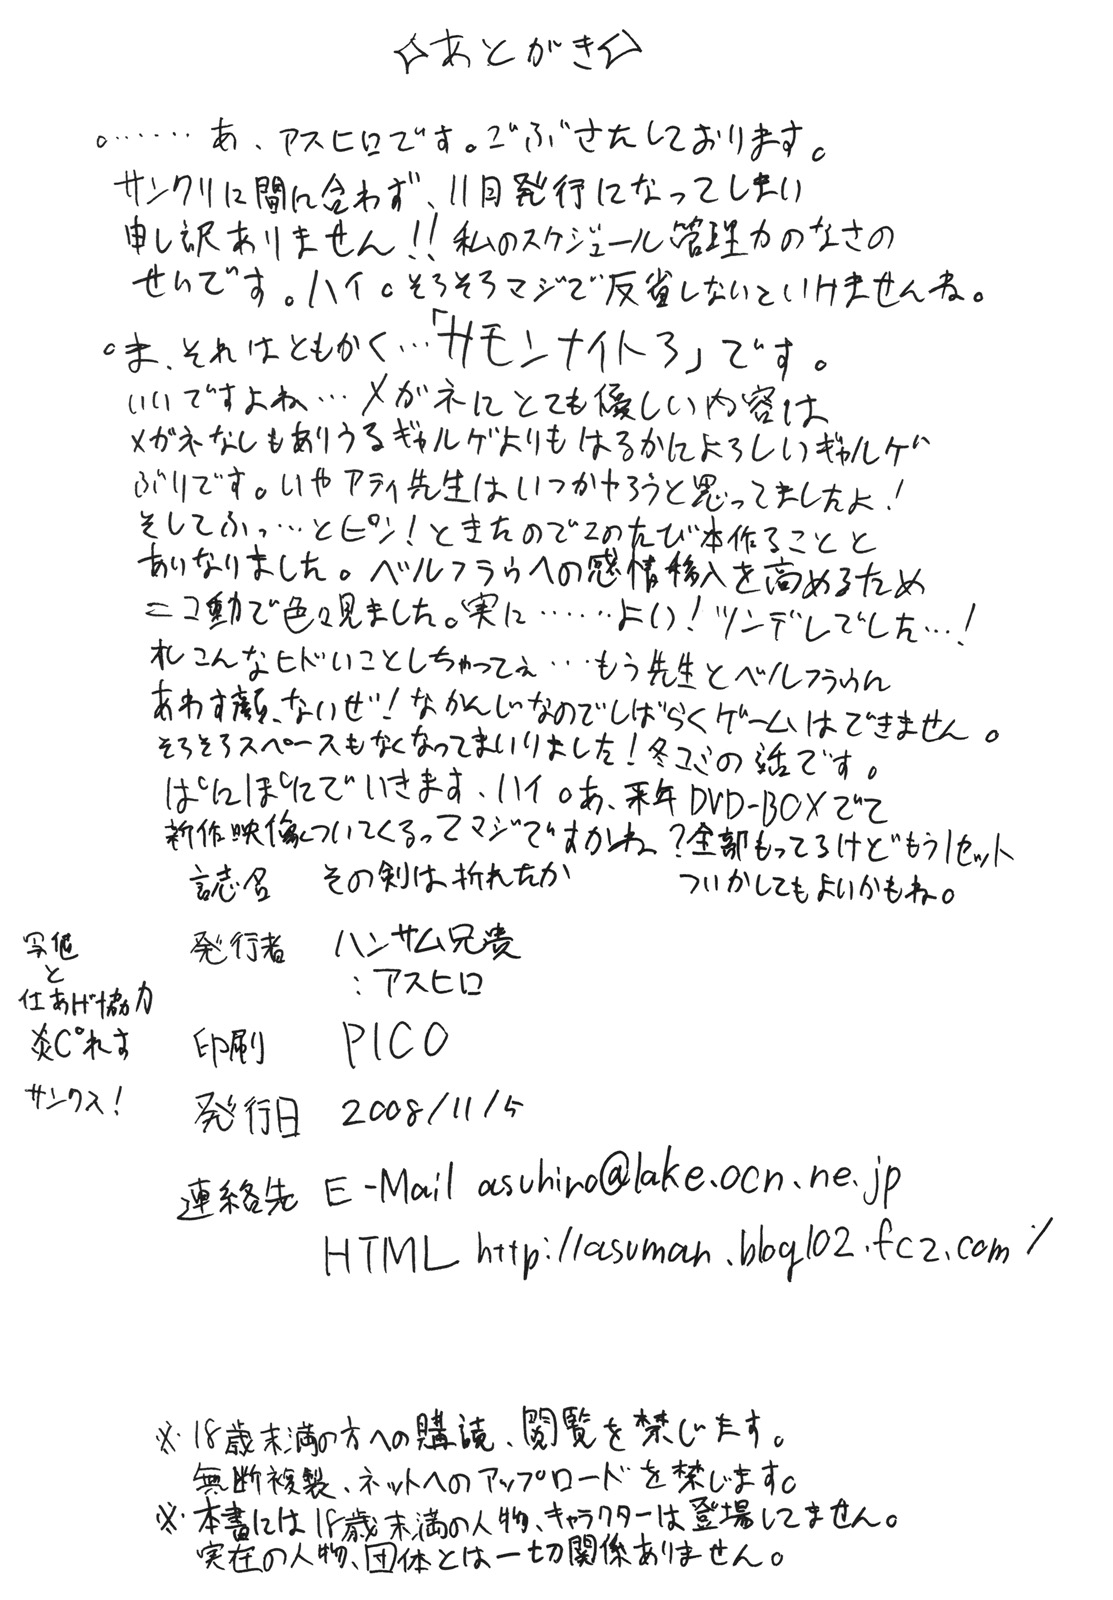 ☆あとがき☆
○……あ、アスヒロです。ごぶさたしております。
サンクリに間に合わず、11月発行になってしまい
申し訳ありません!!私のスケジュール管理力のなさの
せいです。ハイ。そろそろマジで反省しないといけませんね。
○ま、それはともかく…「サモンナイト3」です。
いいですよね…メガネにとても優しい内容は
メガネなしもありうるギャルゲよりもはるかによろしいギャルゲ
ぶりです。いやアティ先生はいつかやろうと思ってましたよ!
そしてふっ…とピン!ときたのでこのたび本作ることと
あいなりました。ベルフラウへの感情移入を高めるため
ニコ動で色々見ました。実に……よい!ツンデレでした…!
こんなヒドいことしちゃってぇ…もう先生とベルフラウに
あわす顔、ないぜ!なかんじなのでしばらくゲームはできません。
そろそろスペースもなくなってまいりました!冬コミの話です。
ぱにぽにでいきます、ハイ。あ、来年DVD-BOXでて
新作映像ついてくるってマジですかね?全部もってるけどもう1セット
ついかしてもよいかもね。
誌名 その剣は折れたか
発行者 ハンサム兄貴
:アスヒロ
印刷 PICO
発行日 2008/11/5
連絡先 E-Mail asuhiro@lake.ocn.ne.jp
HTML http://asuman.blog102.fc2.com/
写植
と
仕あげ協力
炎ぴれす
サンクス!
※18歳未満の方への購読、閲覧を禁じます。
無断複製、ネットへのアップロードを禁じます。
※本書には18歳未満の人物、キャラクターは登場してません。
実在の人物、団体とは一切関係ありません。